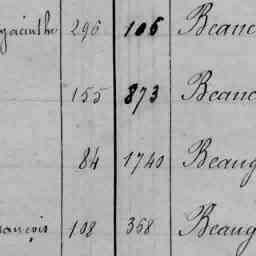 yacinthe 296 106 Beauc
155 873 Beauc
84 1740 Beaug
rançois 108 368 Beaug